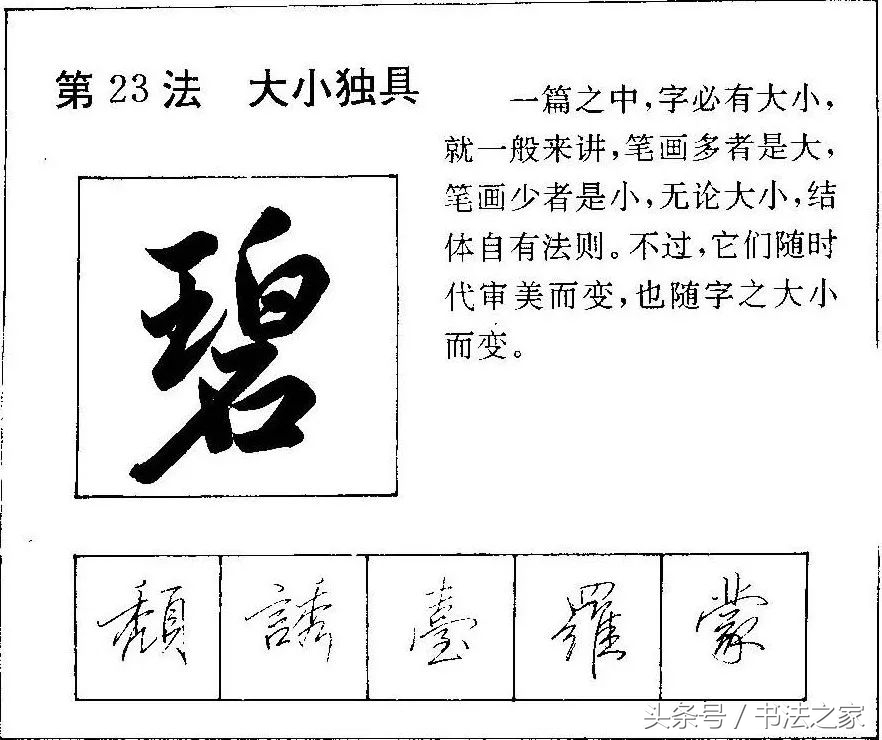 第23法 大小独具
一篇之中,字必有大小,
就一般来讲,笔画多者是大,
笔画少者是小,无论大小,结
体自有法则。不过,它们随时
代审美而变,也随字之大小
而变。
碧
頹 誘 臺 羅 蒙
头条号 / 书法之家